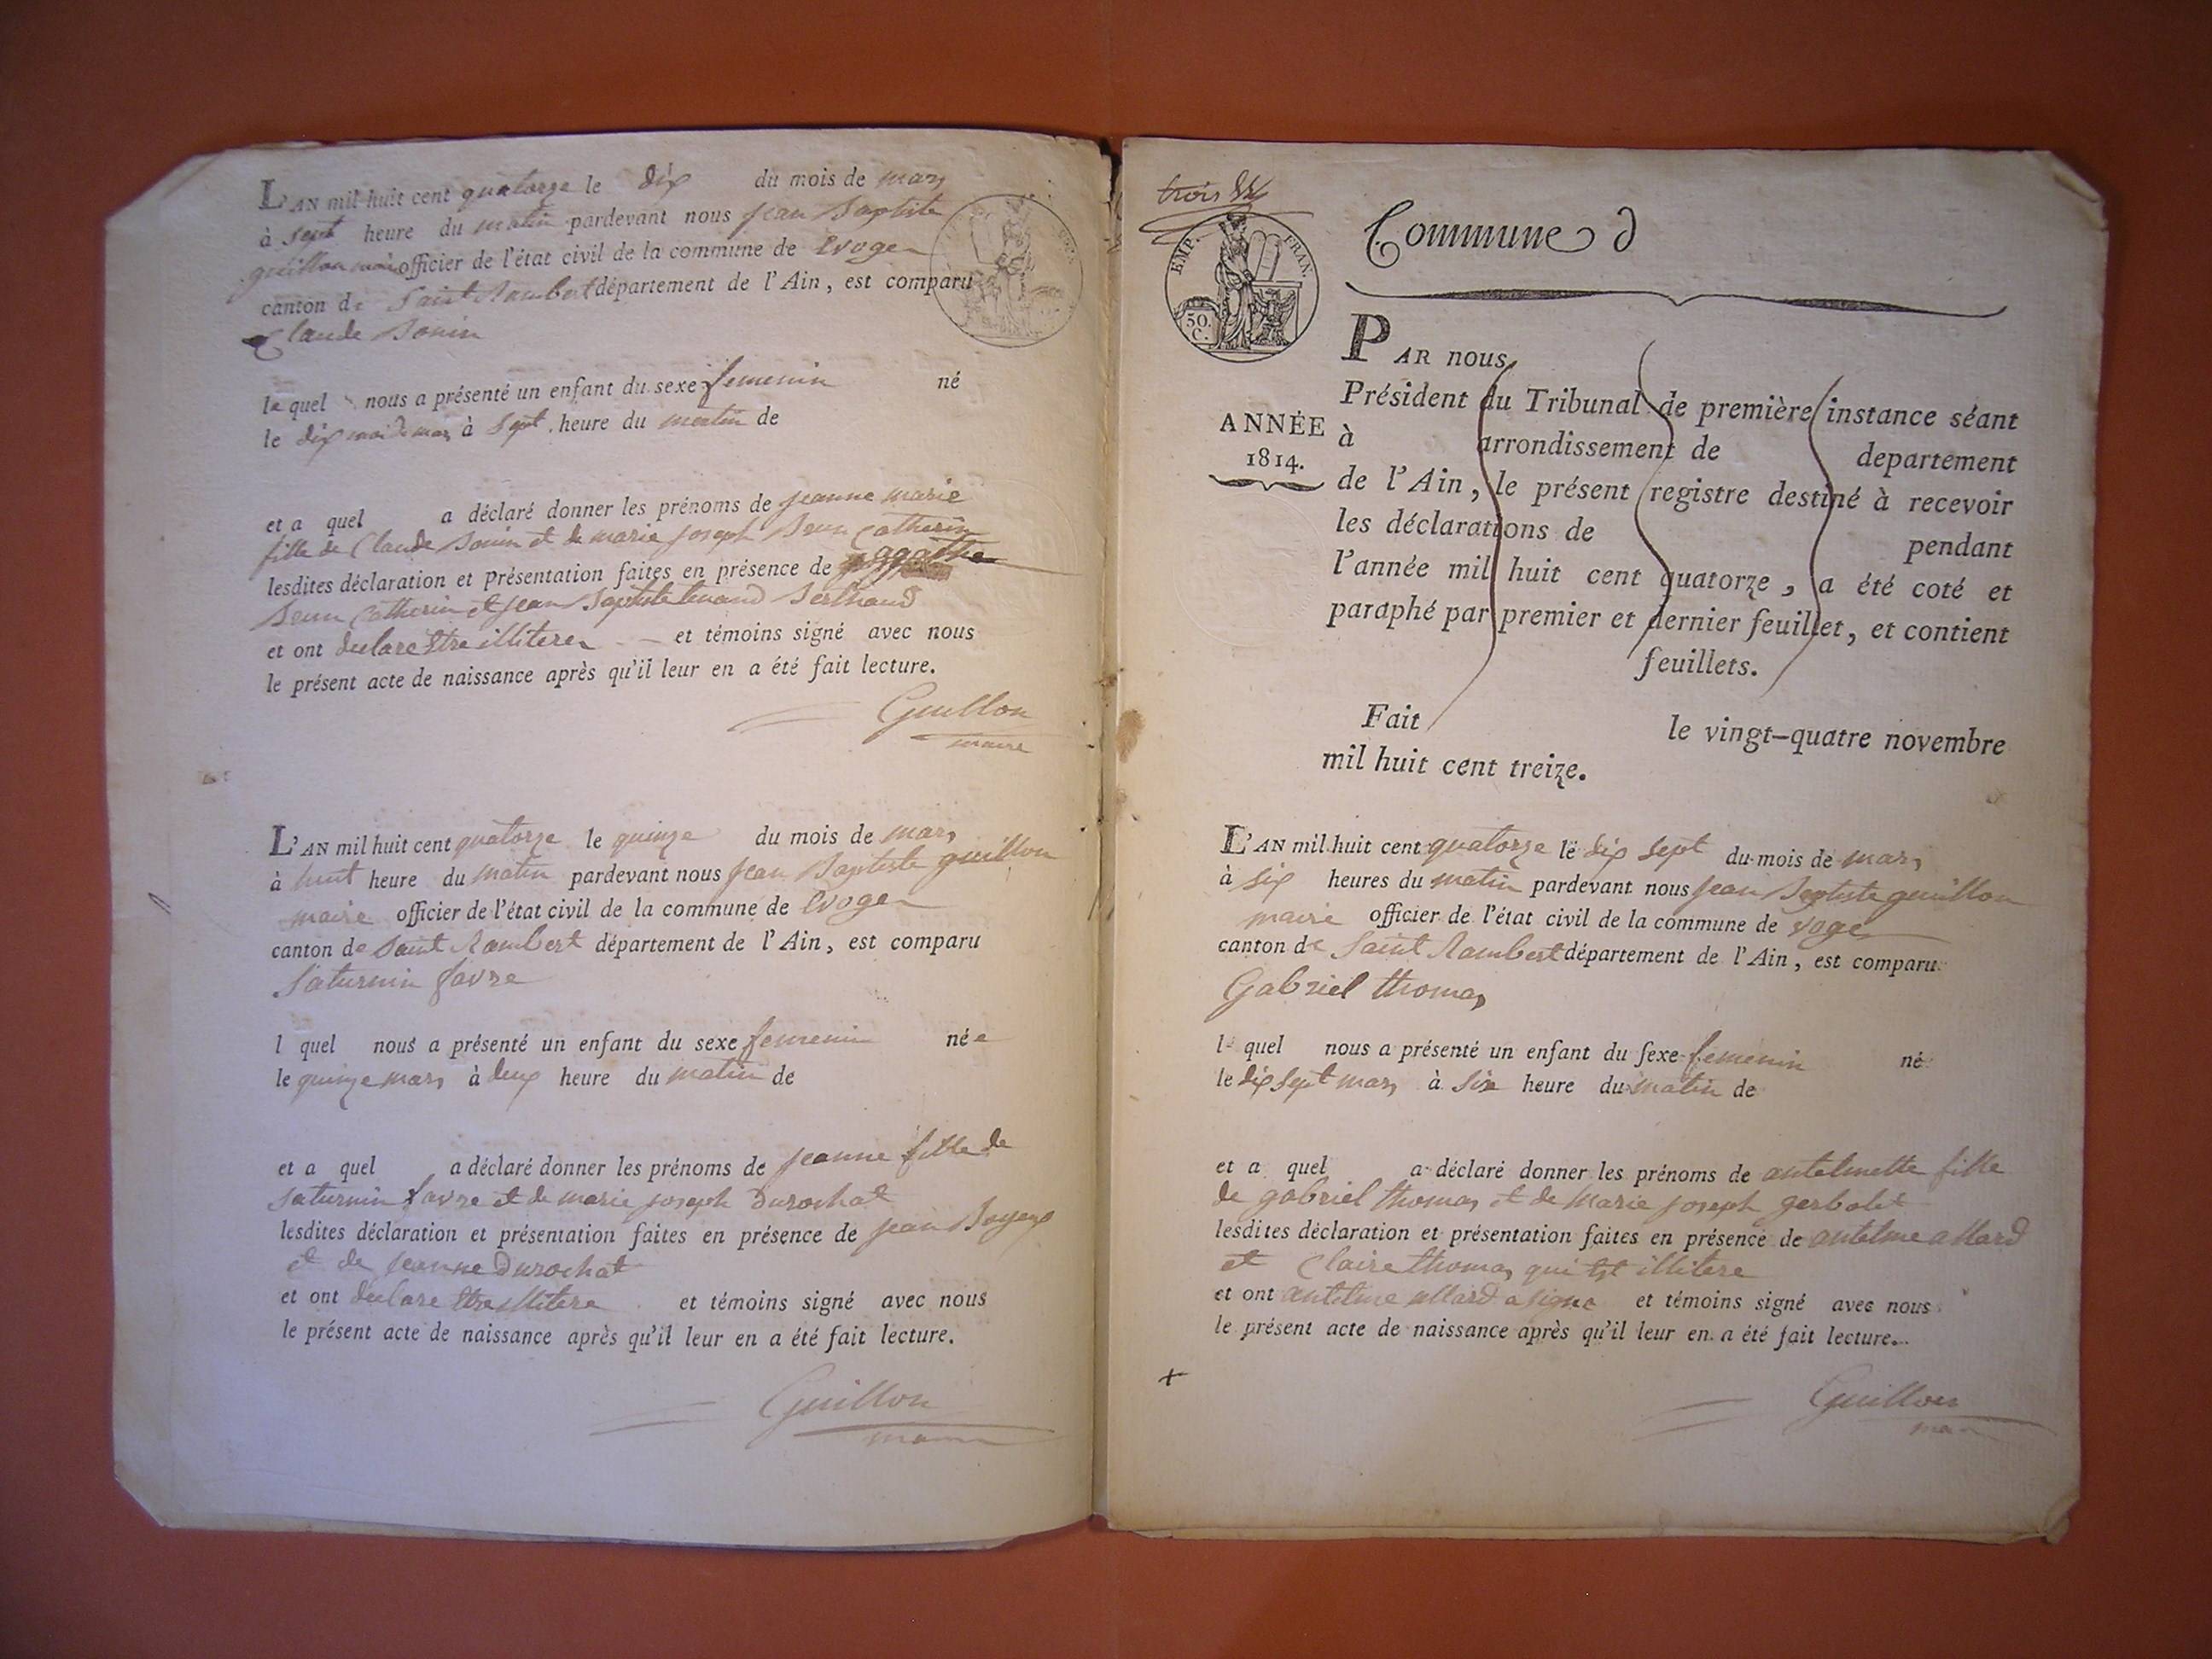 L'AN mil huit cent quatorze le dix du mois de mars
à sept heure du matin pardevant nous jean Baptiste
guillon maire officier de l'état civil de la commune de Evoges
canton de Saint Rambert département de l'Ain, est comparu
Claude Bonin
le quel nous a présenté un enfant du sexe femenin né
le dix mars à sept heure du matin de
et a quel a déclaré donner les prénoms de jeanne marie
fille de Claude Bonin et de marie joseph Brun Catherin
lesdites déclaration et présentation faites en présence de agathe
Brun Catherin et jean Baptiste Berthaud
et ont declare Etre illiteres et témoins signé avec nous
le présent acte de naissance après qu'il leur en a été fait lecture.
Guillon
maire
L'AN mil huit cent quatorze le quinze du mois de mars
à huit heure du matin pardevant nous jean Baptiste guillon
maire officier de l'état civil de la commune de Evoges
canton de Saint Rambert département de l'Ain, est comparu
Saturnin favre
l quel nous a présenté un enfant du sexe femenin née
le quinze mars à deux heure du matin de
et a quel a déclaré donner les prénoms de jeanne fille de
saturnin favre et de marie joseph Durochat
lesdites déclaration et présentation faites en présence de jean Boyeux
et de jeanne Durochat
et ont declare Etre illitere et témoins signé avec nous
le présent acte de naissance après qu'il leur en a été fait lecture.
Guillon
maire
trois
EMP. FRAN.
50. C.
Commune d
PAR nous,
Président du Tribunal de première instance séant
ANNÉE
1814.
à arrondissement de departement
de l'Ain, le présent registre destiné à recevoir
les déclarations de pendant
l'année mil huit cent quatorze, a été coté et
paraphé par premier et dernier feuillet, et contient
feuillets.
Fait le vingt-quatre novembre
mil huit cent treize.
L'AN mil huit cent quatorze le dix sept du mois de mars
à six heures du matin pardevant nous jean Baptiste guillon
maire officier de l'état civil de la commune de voges
canton de Saint Rambert département de l'Ain, est comparu
Gabriel thomas
le quel nous a présenté un enfant du sexe femenin né
le dix sept mars à six heure du matin de
et a quel a déclaré donner les prénoms de antelmette fille
de gabriel thomas et de marie joseph gerbolet
lesdites déclaration et présentation faites en présence de antelme allard
et Claire thomas qui est illitere
et ont antelme allard a signe et témoins signé avec nous
le présent acte de naissance après qu'il leur en a été fait lecture.
Guillon
maire